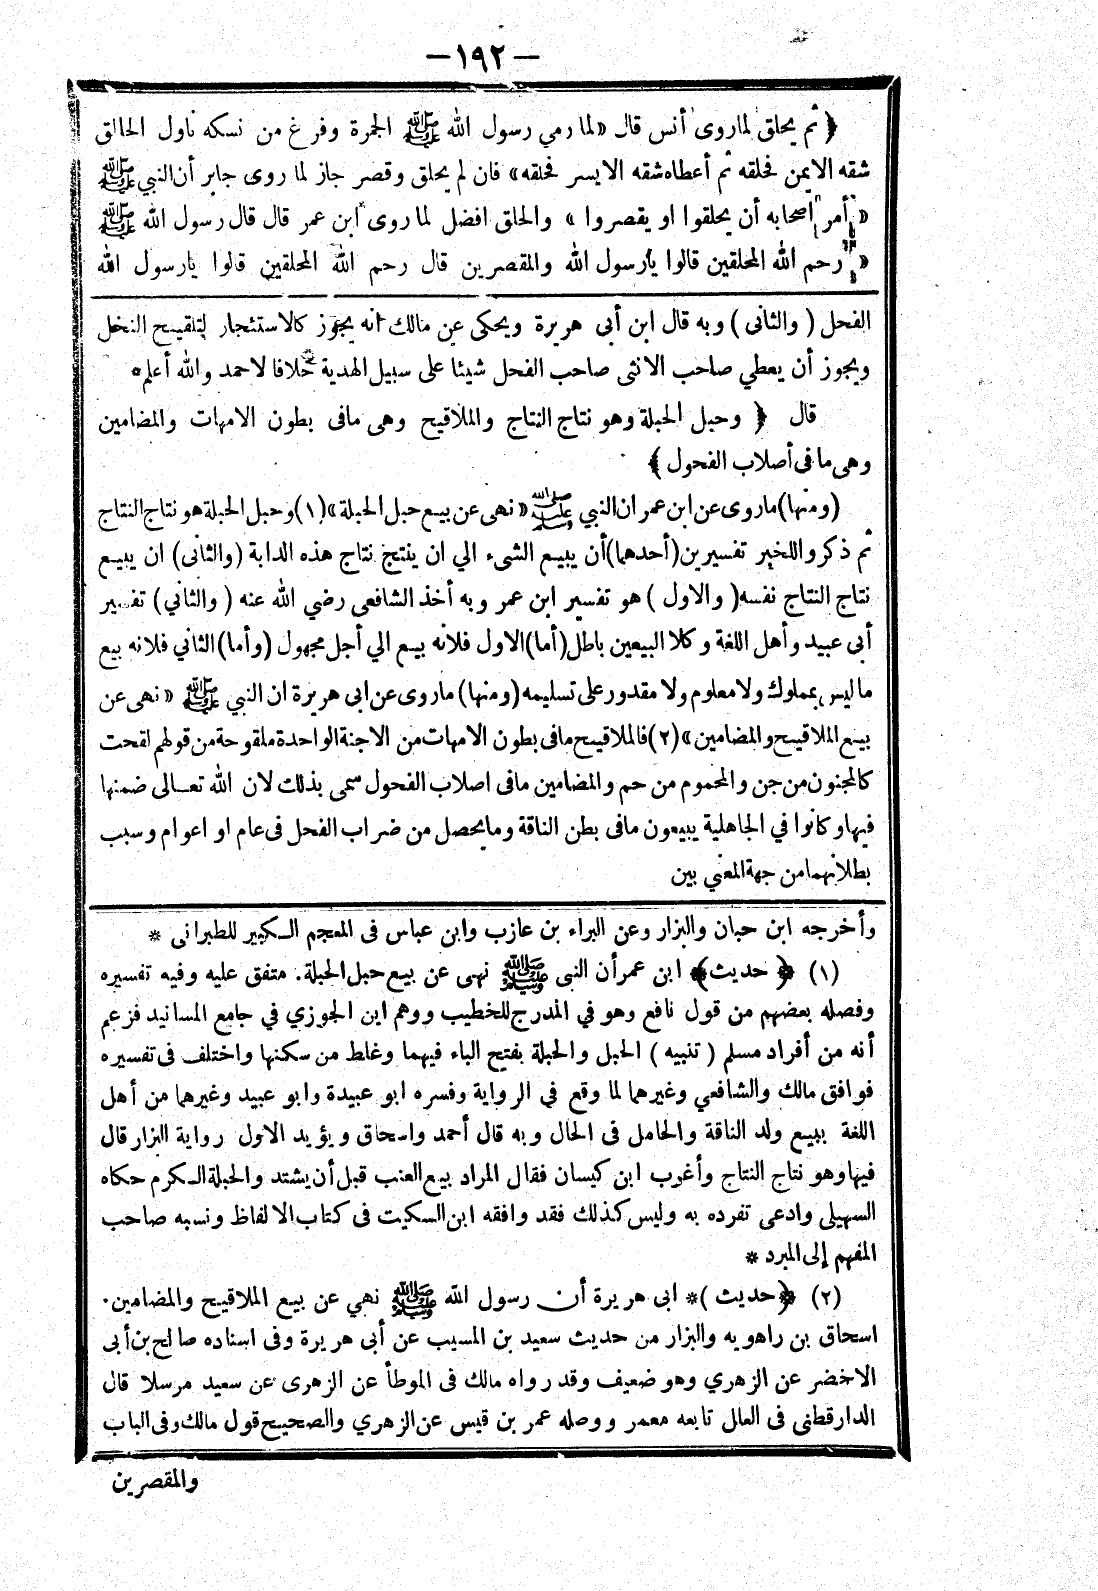 — ١٩٢ —
﴿ ثم يحلق لماروى أنس قال «لما رمي رسول الله ﷺ الجمرة وفرغ من نسكه ناول الحالق
شقه الايمن فحلقه ثم أعطاه شقه الايسر فحلقه» فان لم يحلق وقصر جاز لما روى جابر أن النبي ﷺ
« أمر اصحابه أن يحلقوا او يقصروا » والحلق افضل لما روى ابن عمر قال قال رسول الله ﷺ
« رحم الله المحلقين قالوا يارسول الله والمقصرين قال رحم الله المحلقين قالوا يارسول الله
الفحل ( والثانى ) وبه قال ابن أبى هريرة ويحكى عن مالك انه يجوز كالاستئجار لتلقيح النخل
ويجوز أن يعطي صاحب الانثى صاحب الفحل شيئا على سبيل الهدية خلافا لاحمد والله أعلم*
قال ﴿ وحبل الحبلة وهو نتاج النتاج والملاقيح وهى مافى بطون الامهات والمضامين
وهى ما فى أصلاب الفحول ﴾
(ومنها) ماروى عن ابن عمر ان النبي ﷺ «نهى عن بيع حبل الحبلة» (١) وحبل الحبلة هو نتاج النتاج
ثم ذكروا للخبر تفسيرين (أحدهما) أن يبيع الشىء الي ان ينتج نتاج هذه الدابة (والثانى) ان يبيع
نتاج النتاج نفسه ( والاول ) هو تفسير ابن عمر وبه أخذ الشافعى رضي الله عنه ( والثاني ) تفسير
أبى عبيد وأهل اللغة وكلا البيعين باطل (أما) الاول فلانه بيع الي أجل مجهول (وأما) الثاني فلانه بيع
ما ليس بمملوك ولا معلوم ولا مقدور على تسليمه (ومنها) ماروى عن ابى هريرة ان النبي ﷺ «نهى عن
بيع الملاقيح والمضامين» (٢) فالملاقيح مافى بطون الامهات من الاجنة الواحدة ملقوحة من قولهم لقحت
كالمجنون من جن والمحموم من حم والمضامين مافى اصلاب الفحول سمى بذلك لان الله تعالى ضمنها
فيها وكانوا في الجاهلية يبيعون مافى بطن الناقة ومايحصل من ضراب الفحل فى عام او اعوام وسبب
بطلانهما من جهة المعنى بين
وأخرجه ابن حبان والبزار وعن البراء بن عازب وابن عباس فى المعجم الكبير للطبرانى *
(١) ﴿ حديث ﴾ ابن عمر أن النبى ﷺ نهى عن بيع حبل الحبلة. متفق عليه وفيه تفسيره
وفصله بعضهم من قول نافع وهو في المدرج للخطيب ووهم ابن الجوزي في جامع المسانيد فزعم
أنه من أفراد مسلم ( تنبيه ) الحبل والحبلة بفتح الباء فيهما وغلط من سكنها واختلف فى تفسيره
فوافق مالك والشافعي وغيرهما لما وقع في الرواية وفسره ابو عبيدة وابو عبيد وغيرهما من أهل
اللغة ببيع ولد الناقة والحامل فى الحال وبه قال أحمد واسحاق ويؤيد الاول رواية البزار قال
فيها وهو نتاج النتاج وأغرب ابن كيسان فقال المراد بيع العنب قبل أن يشتد والحبلة الكرم حكاه
السهيلى وادعى تفرده به وليس كذلك فقد وافقه ابن السكيت فى كتاب الالفاظ ونسبه صاحب
المفهم إلى المبرد *
(٢) ﴿ حديث ) * ابى هريرة أن رسول الله ﷺ نهي عن بيع الملاقيح والمضامين.
اسحاق بن راهويه والبزار من حديث سعيد بن المسيب عن أبى هريرة وفى اسناده صالح بن أبى
الاخضر عن الزهري وهو ضعيف وقد رواه مالك فى الموطأ عن الزهرى عن سعيد مرسلا قال
الدارقطنى فى العلل تابعه معمر ووصله عمر بن قيس عن الزهري والصحيح قول مالك وفى الباب
والمقصرين